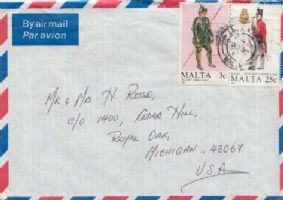 By air mail
Par avion
MALTA 3c
MALTA 25c
Mr & Mr. H. Rosso,
c/o 1400, Cedar Hill,
Royal Oak,
Michigan - 48067
U.S.A